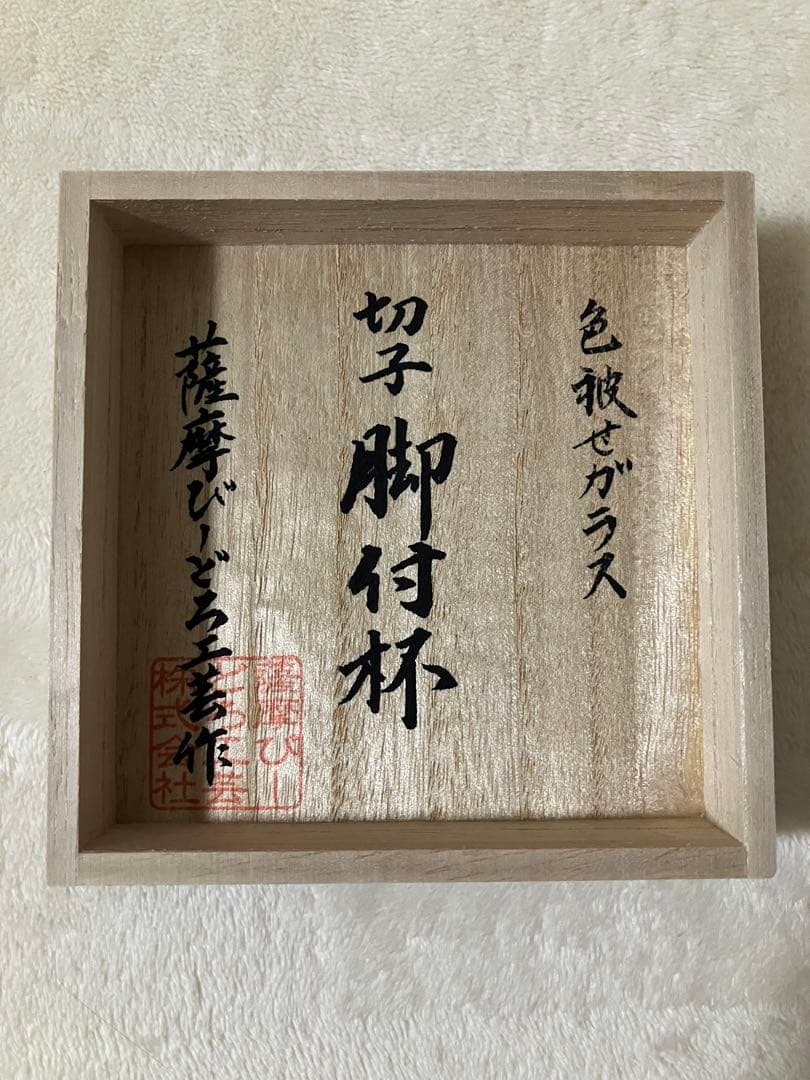 色被せガラス
切子脚付杯
薩摩びーどろ工芸作
薩摩びー
どろ工芸
株式会社